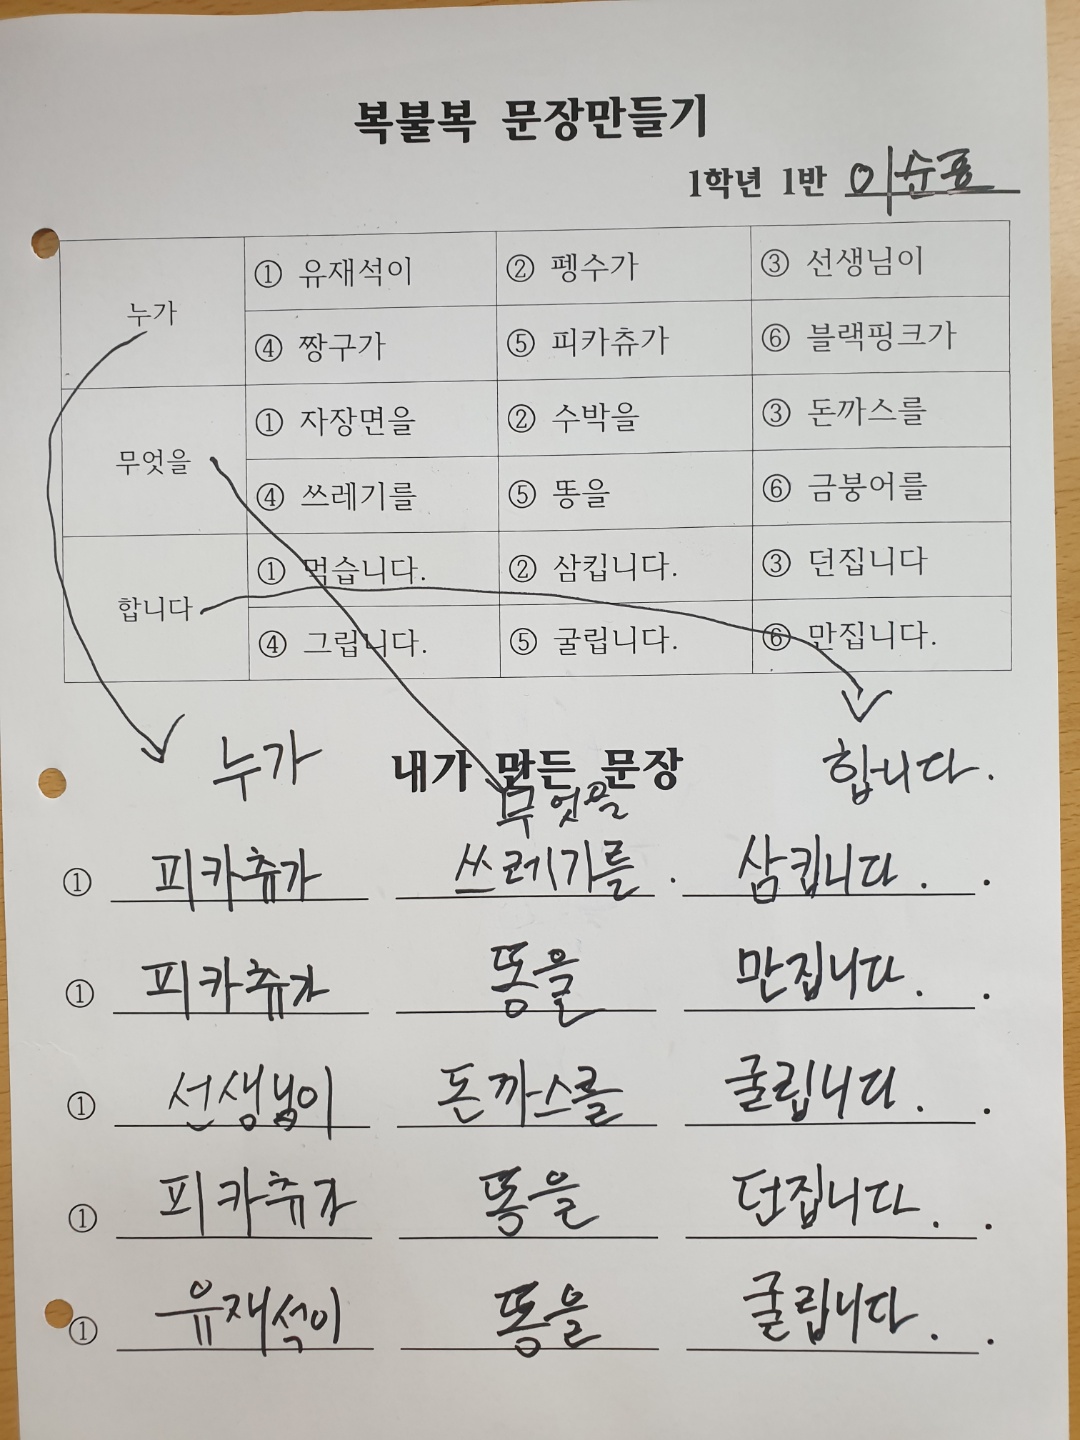 복불복 문장만들기
1학년 1반 이순표
누가 ① 유재석이 ② 펭수가 ③ 선생님이
④ 짱구가 ⑤ 피카츄가 ⑥ 블랙핑크가
무엇을 ① 자장면을 ② 수박을 ③ 돈까스를
④ 쓰레기를 ⑤ 똥을 ⑥ 금붕어를
합니다 ① 먹습니다. ② 삼킵니다. ③ 던집니다
④ 그립니다. ⑤ 굴립니다. ⑥ 만집니다.
누가 내가 만든 문장 합니다.
무엇을
① 피카츄가 쓰레기를 . 삼킵니다. .
① 피카츄가 똥을 만집니다. .
① 선생님이 돈까스를 굴립니다. .
① 피카츄가 똥을 던집니다. .
① 유재석이 똥을 굴립니다. .